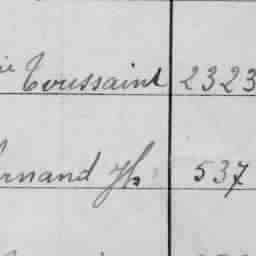 Toussaint 2323
ernand Jh 537